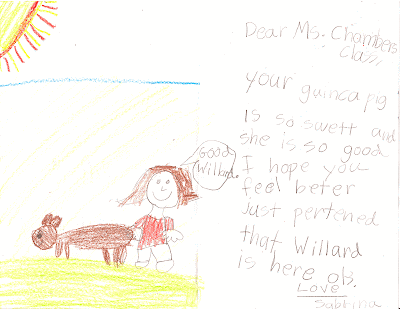 Good
Willard.
Dear Ms. Chambers
Class,
your guinea pig
Is so swett and
she is so good
I hope you
feel beter
Just pertened
that Willard
is here ok.
Love
Sabrina